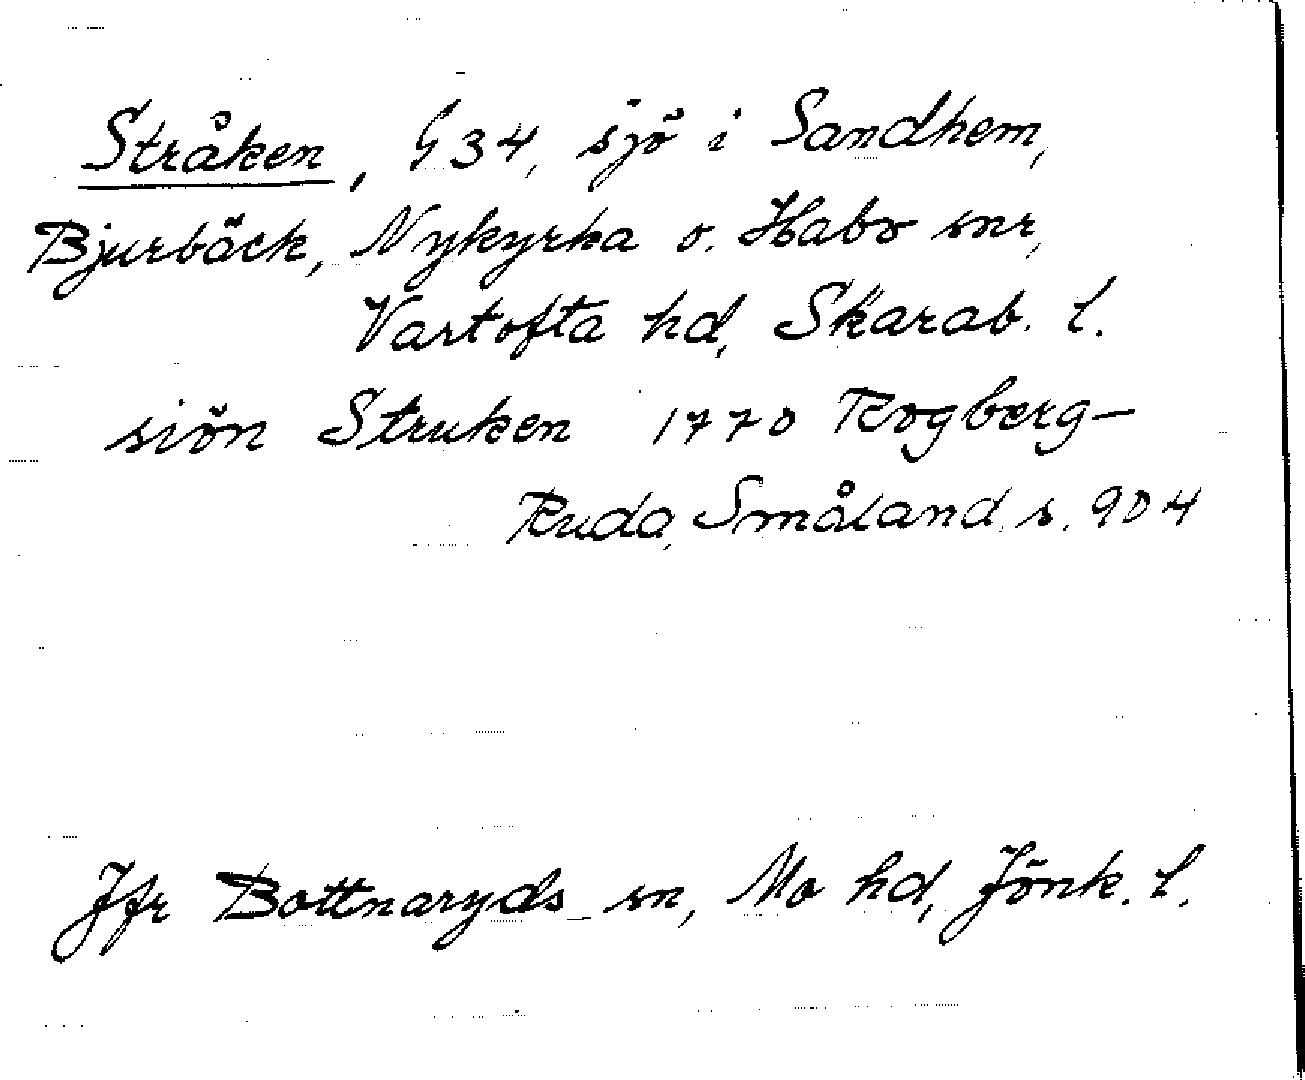 Stråken, G 34, sjö i Sandhem,
Bjurbäck, Nykyrka o. Habo snr,
Vartofta hd, Skarab. l.
siön Struken 1770 Rogberg-
Ruda, Småland s. 904
Jfr Bottnaryds sn, Mo hd, Jönk. l.